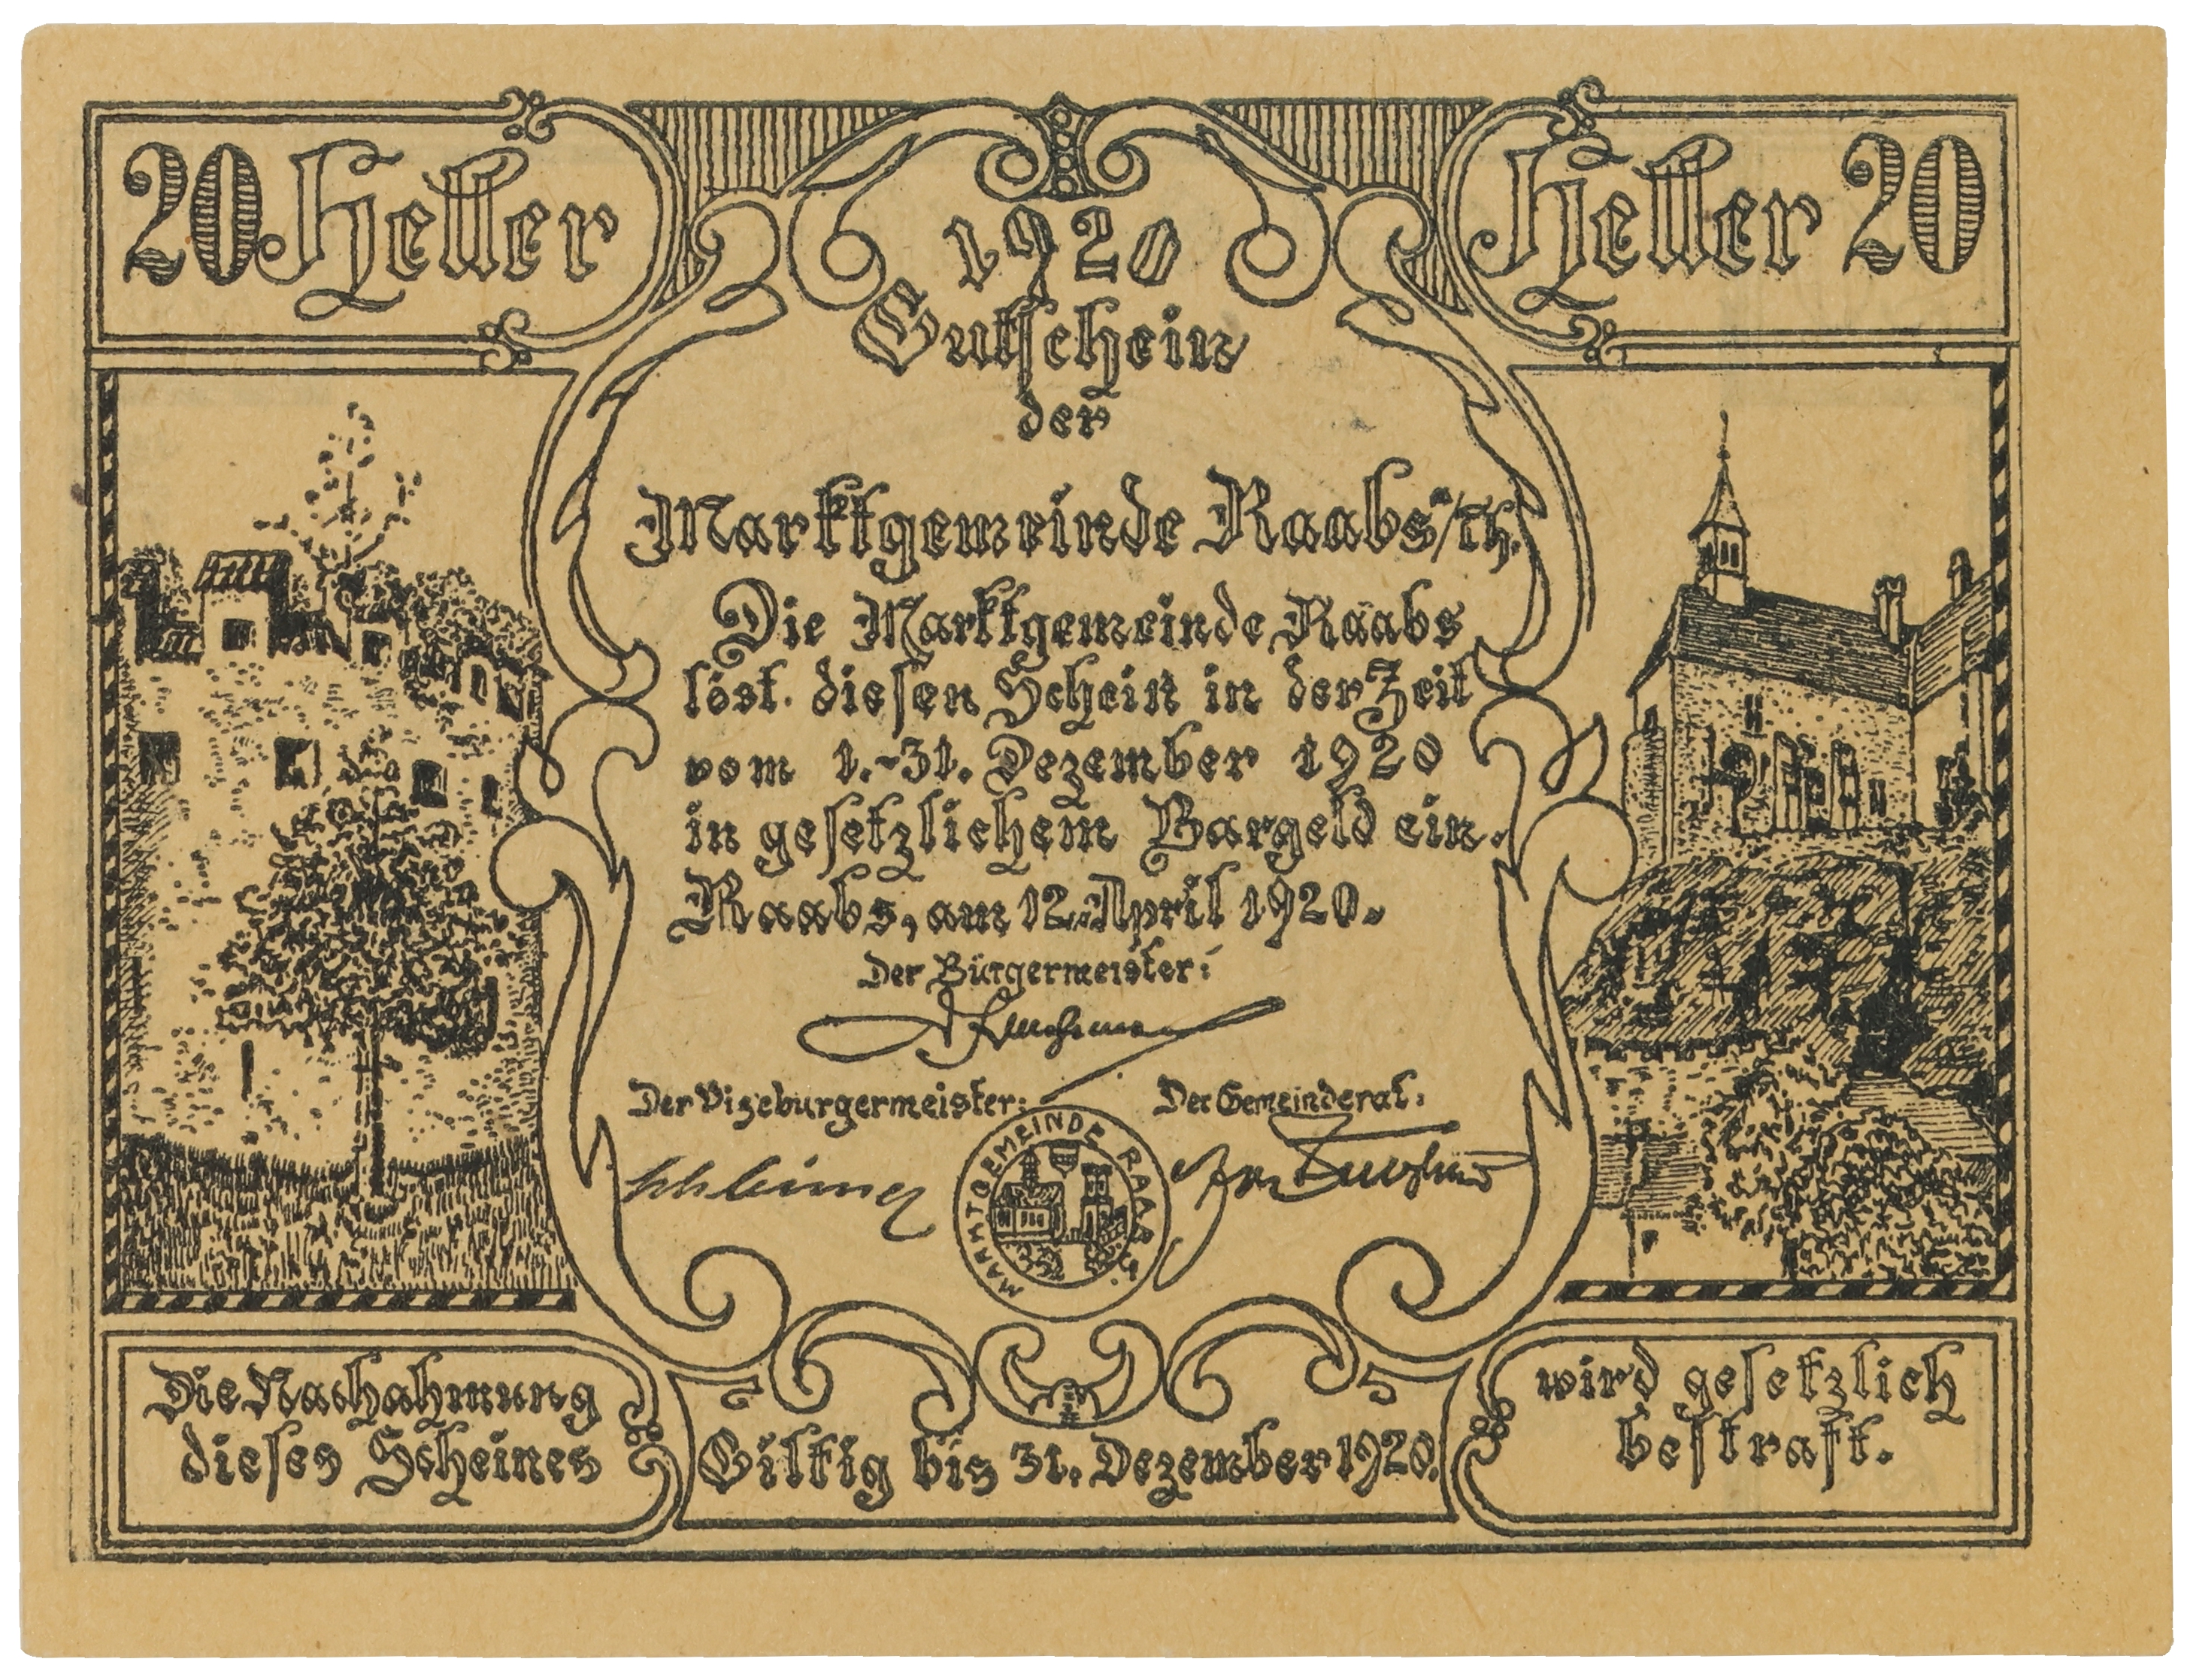 20 Heller
Heller 20
1920
Gutschein
der
Marktgemeinde Raabs a/Th.
Die Marktgemeinde Raabs
löst diesen Schein in der Zeit
vom 1.-31. Dezember 1920
in gesetzlichem Bargeld ein.
Raabs, am 12. April 1920.
Der Bürgermeister:
Der Vizebürgermeister:
Der Gemeinderat:
MARKTGEMEINDE RAABS
Die Nachahmung
dieses Scheines
Giltig bis 31. Dezember 1920.
wird gesetzlich
bestraft.